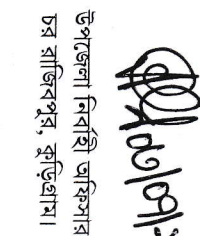 উপজেলা নির্বাহী অফিসার
চর রাজিবপুর, কুড়িগ্রাম।